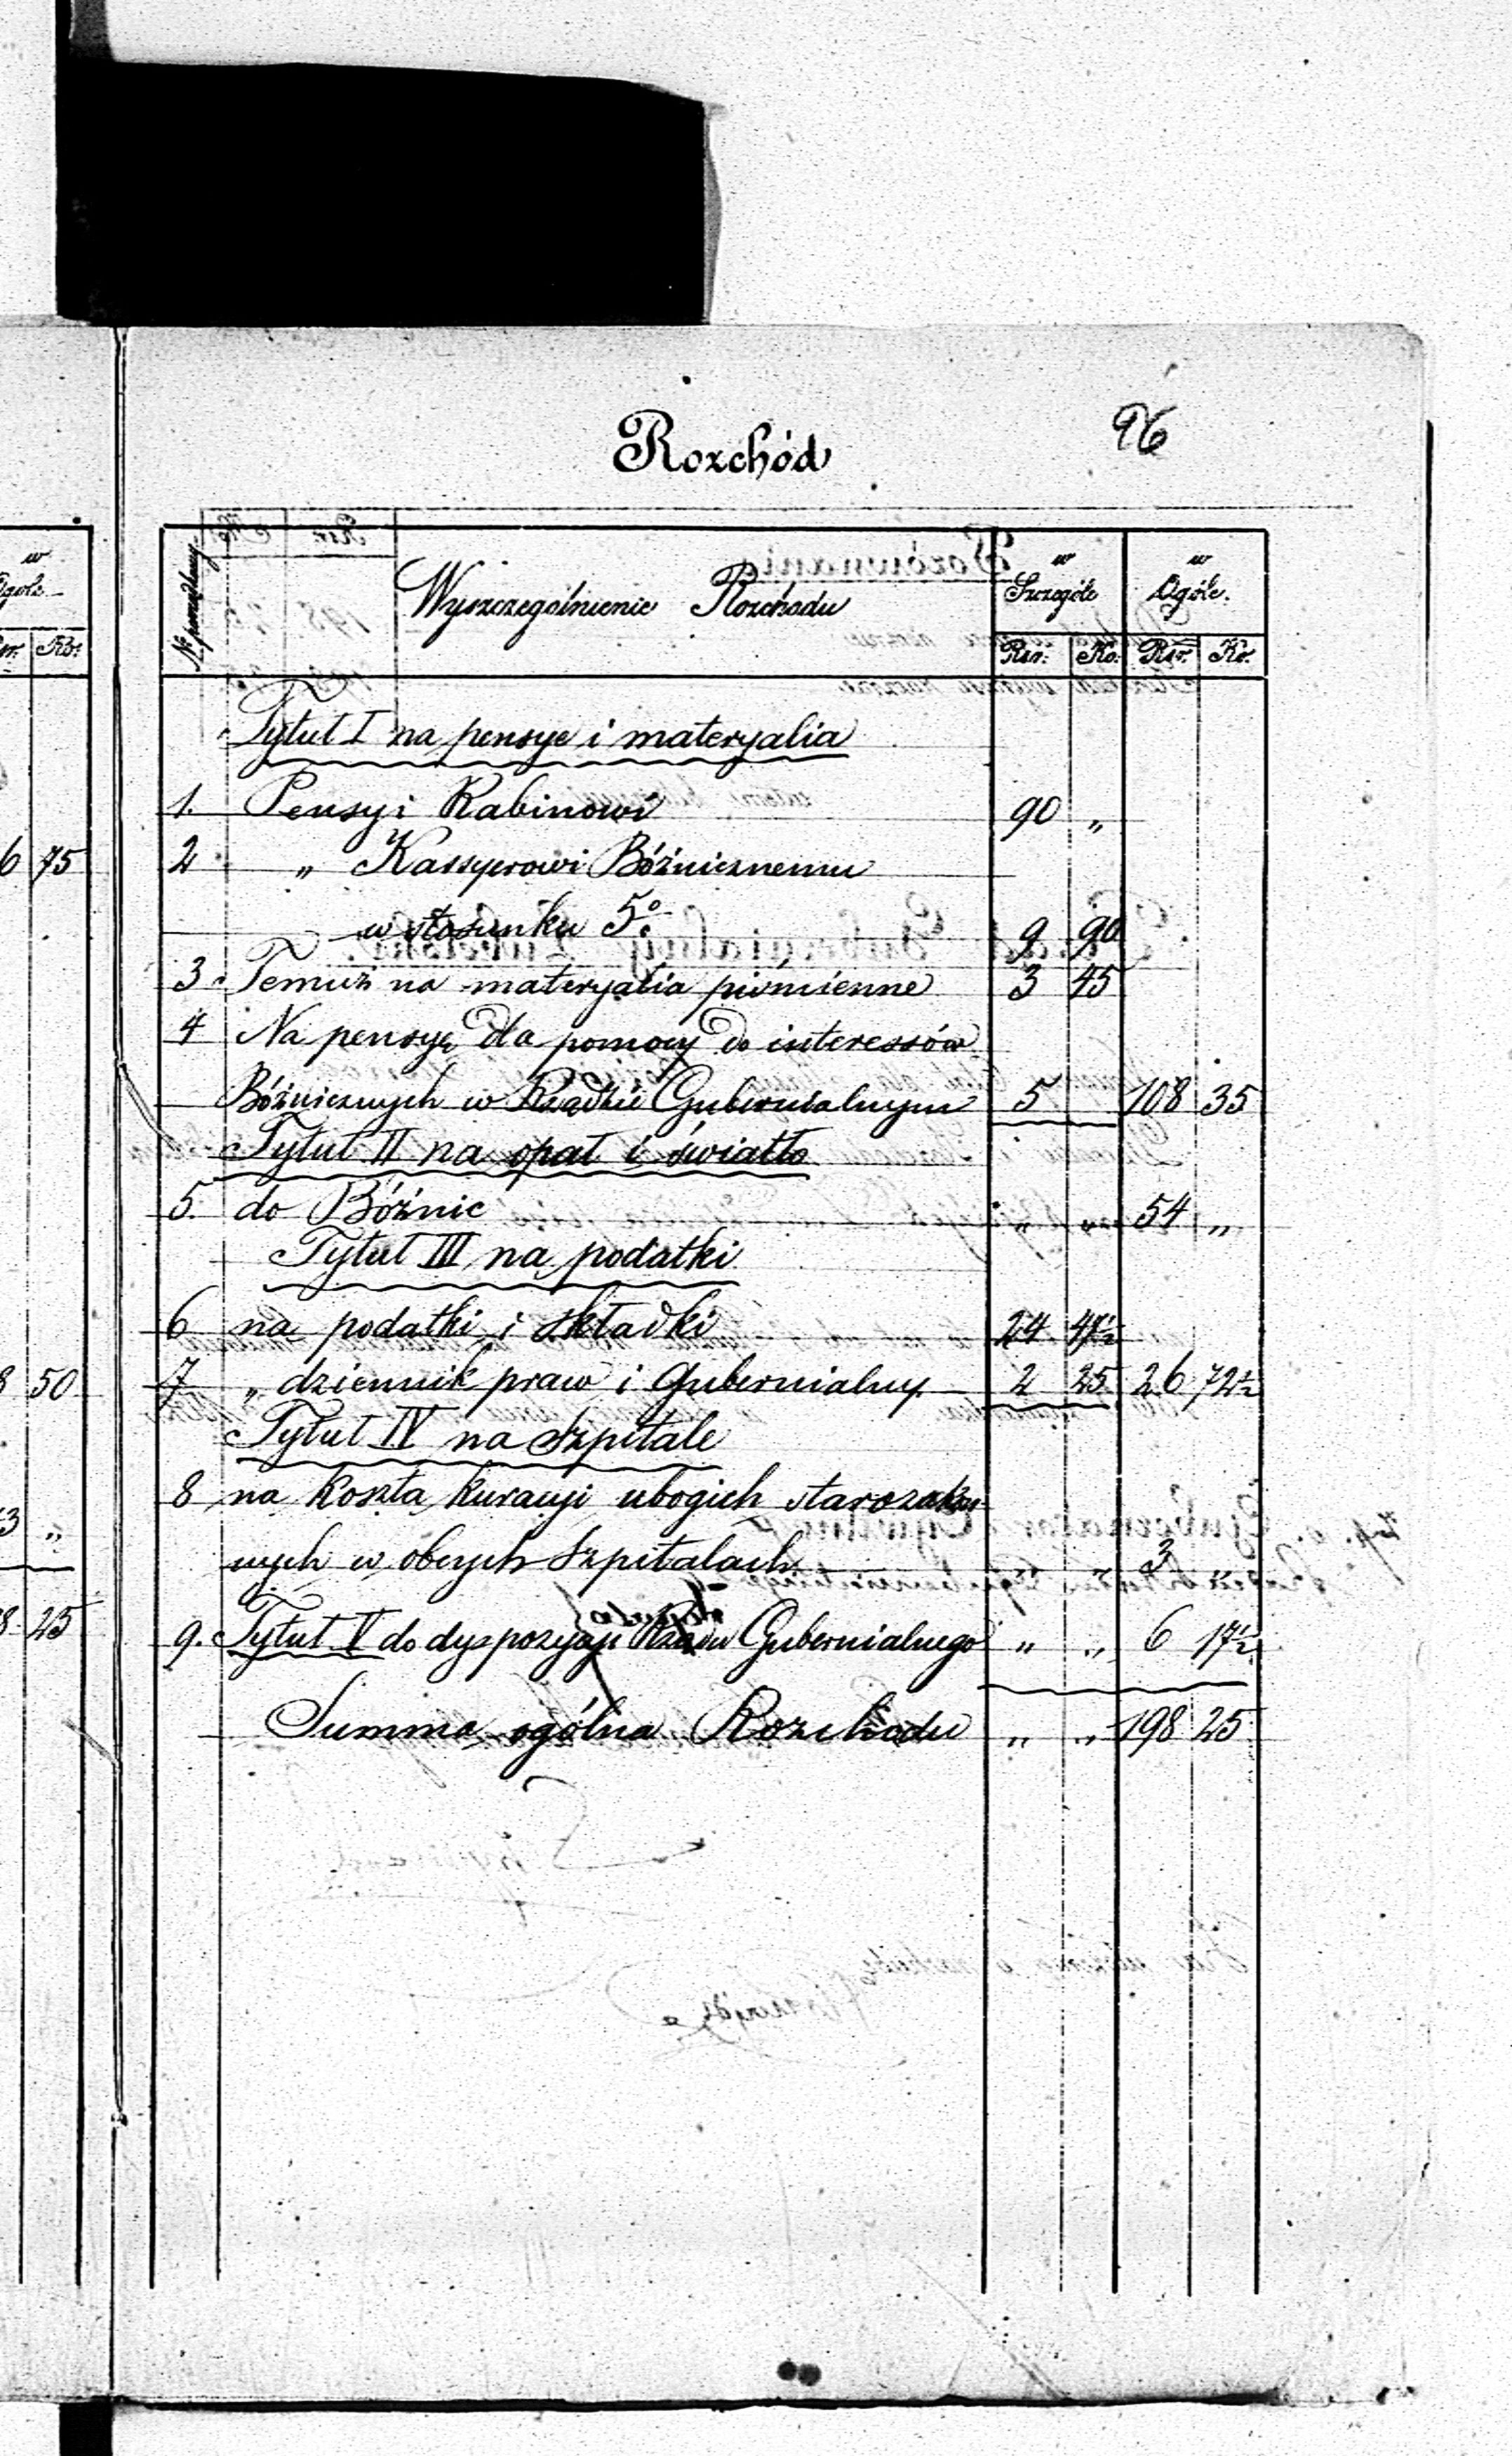 96
Rozchód
w
Ogóle
Rsr. Ko.
№ porządkowy
Wyszczególnienie Rozchodu
w Szczególe
w Ogóle.
Rsr. Ko. Rsr. Ko.
Tytuł I na pensye i materyalia
1. Pensyi Rabinowi 90 „
6 75
2 „ Kassyerowi Bóżnicznemu
w stosunku 5% 9 90
3 Temuż na materyalia piśmienne 3 45
4 Na pensyę dla pomocy do interessów
Bóżnicznych w Rządzie Gubernialnym 5 108 35
Tytuł II na opał i światło
5. do Bóżnic „ „ 54 „
Tytuł III na podatki
6 na podatki i składki 24 47½
8 50
7 „ dziennik praw i Gubernialny 2 25 26 72½
Tytuł IV na Szpitale
8 na koszta kuracyi ubogich starozakon
3 „
nych w obcych Szpitalach „ „ 3 „
8 25
9. Tytuł V do dyspozycyi Rządu Gubernialnego „ „ 6 17½
Summa ogólna Rozchodu „ „ 198 25